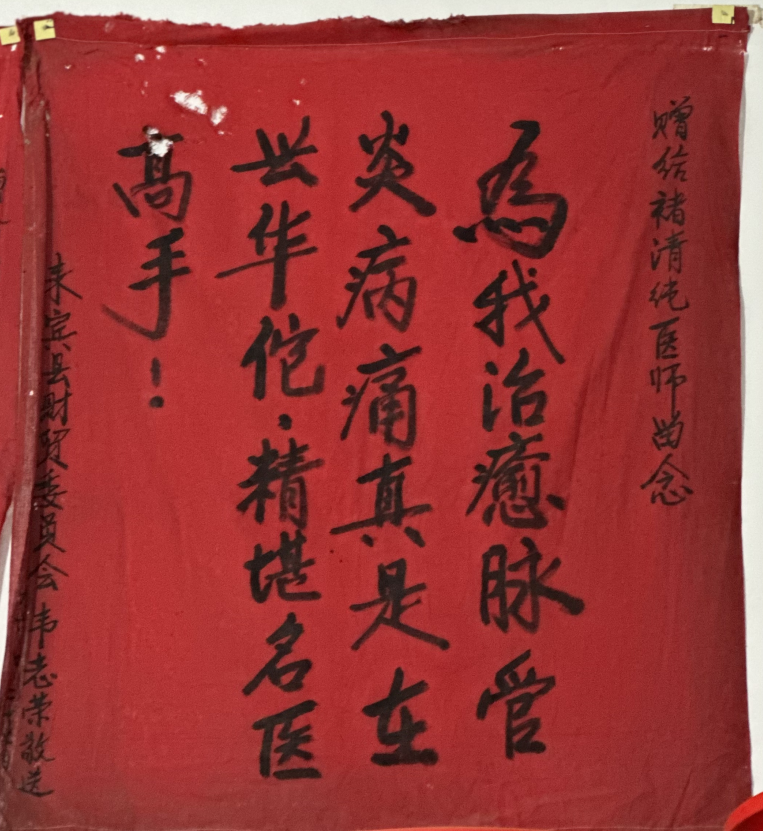 赠给褚清纯医师留念
為我治癒脉管
炎病痛真是在
世华佗、精堪名医
高手！
来宾县财贸委员会韦志荣敬送